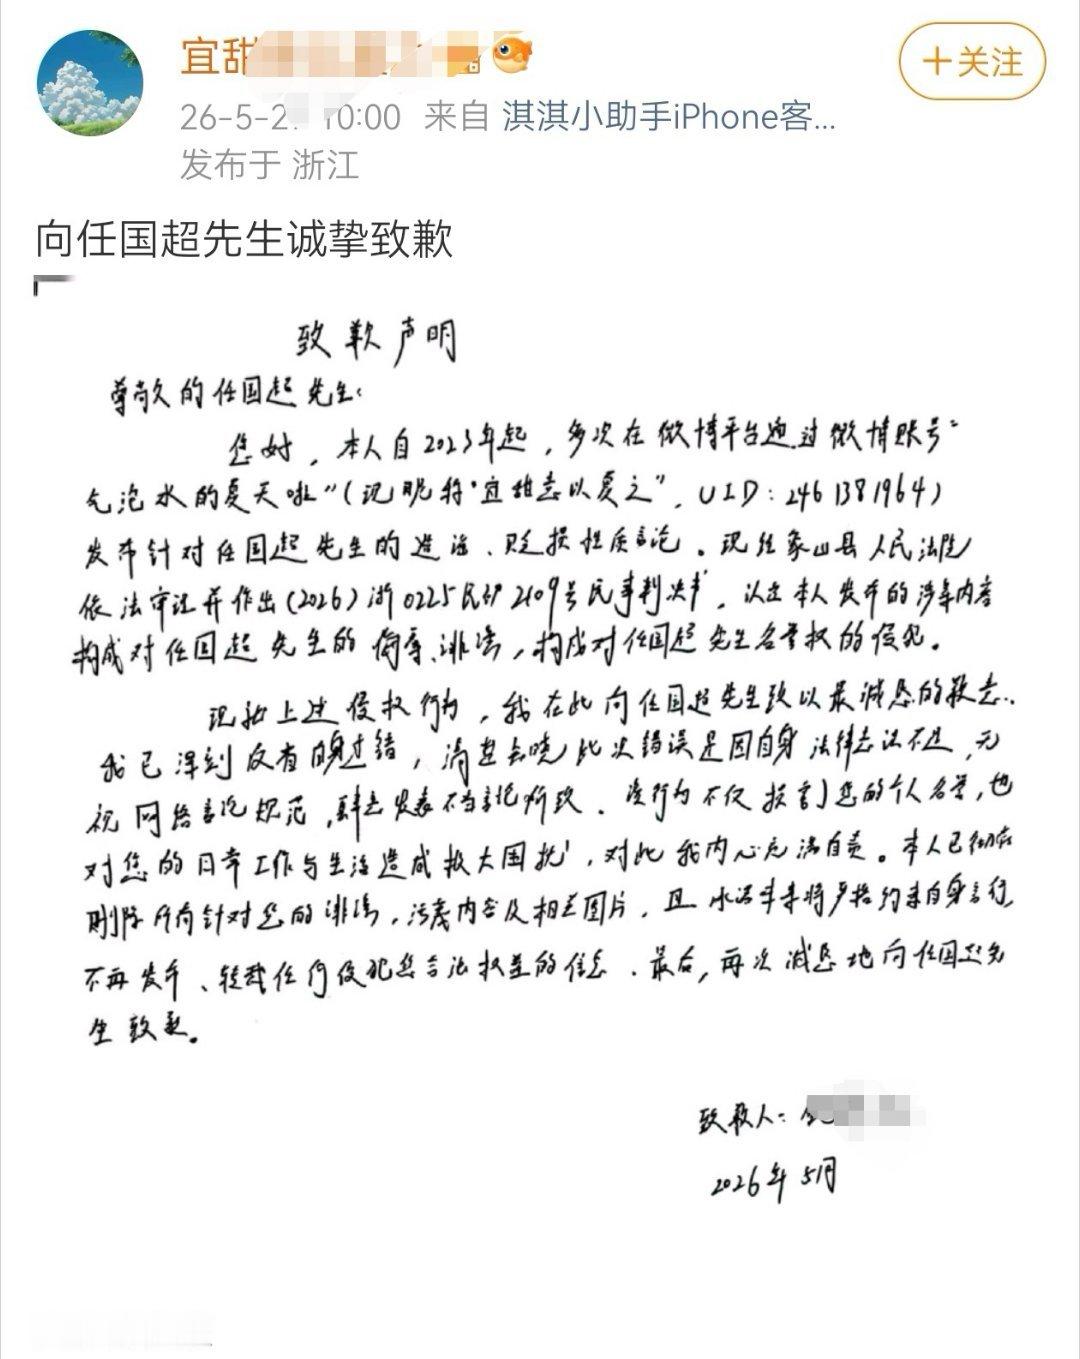 宜甜
+关注
26-5-2 10:00 来自 淇淇小助手iPhone客...
发布于 浙江
向任国超先生诚挚致歉
致歉声明
尊敬的任国超先生：
您好，本人自2023年起，多次在微博平台通过微博账号“
气泡水的夏天啦”（现昵称“宜甜志以夏之”，UID：2461381964）
发布针对任国超先生的造谣、贬损性质言论。现经象山县人民法院
依法审理并作出（2026）浙0225民初2109号民事判决书，认定本人发布的涉案内容
构成对任国超先生的侮辱、诽谤，构成对任国超先生名誉权的侵犯。
现就上述侵权行为，我在此向任国超先生致以最诚恳的歉意。
我已深刻反省自身过错，清楚知晓此次错误是因自身法律意识不足，无
视网络言论规范，肆意发表不当言论所致。该行为不仅损害了您的个人名誉，也
对您的日常工作与生活造成极大困扰，对此我内心充满自责。本人已彻底
删除所有针对您的诽谤，污蔑内容及相关图片，且承诺未来将严格约束自身言行，
不再发布、转载任何侵犯您合法权益的信息。最后，再次诚恳地向任国超先
生致歉。
致歉人：
2026年5月